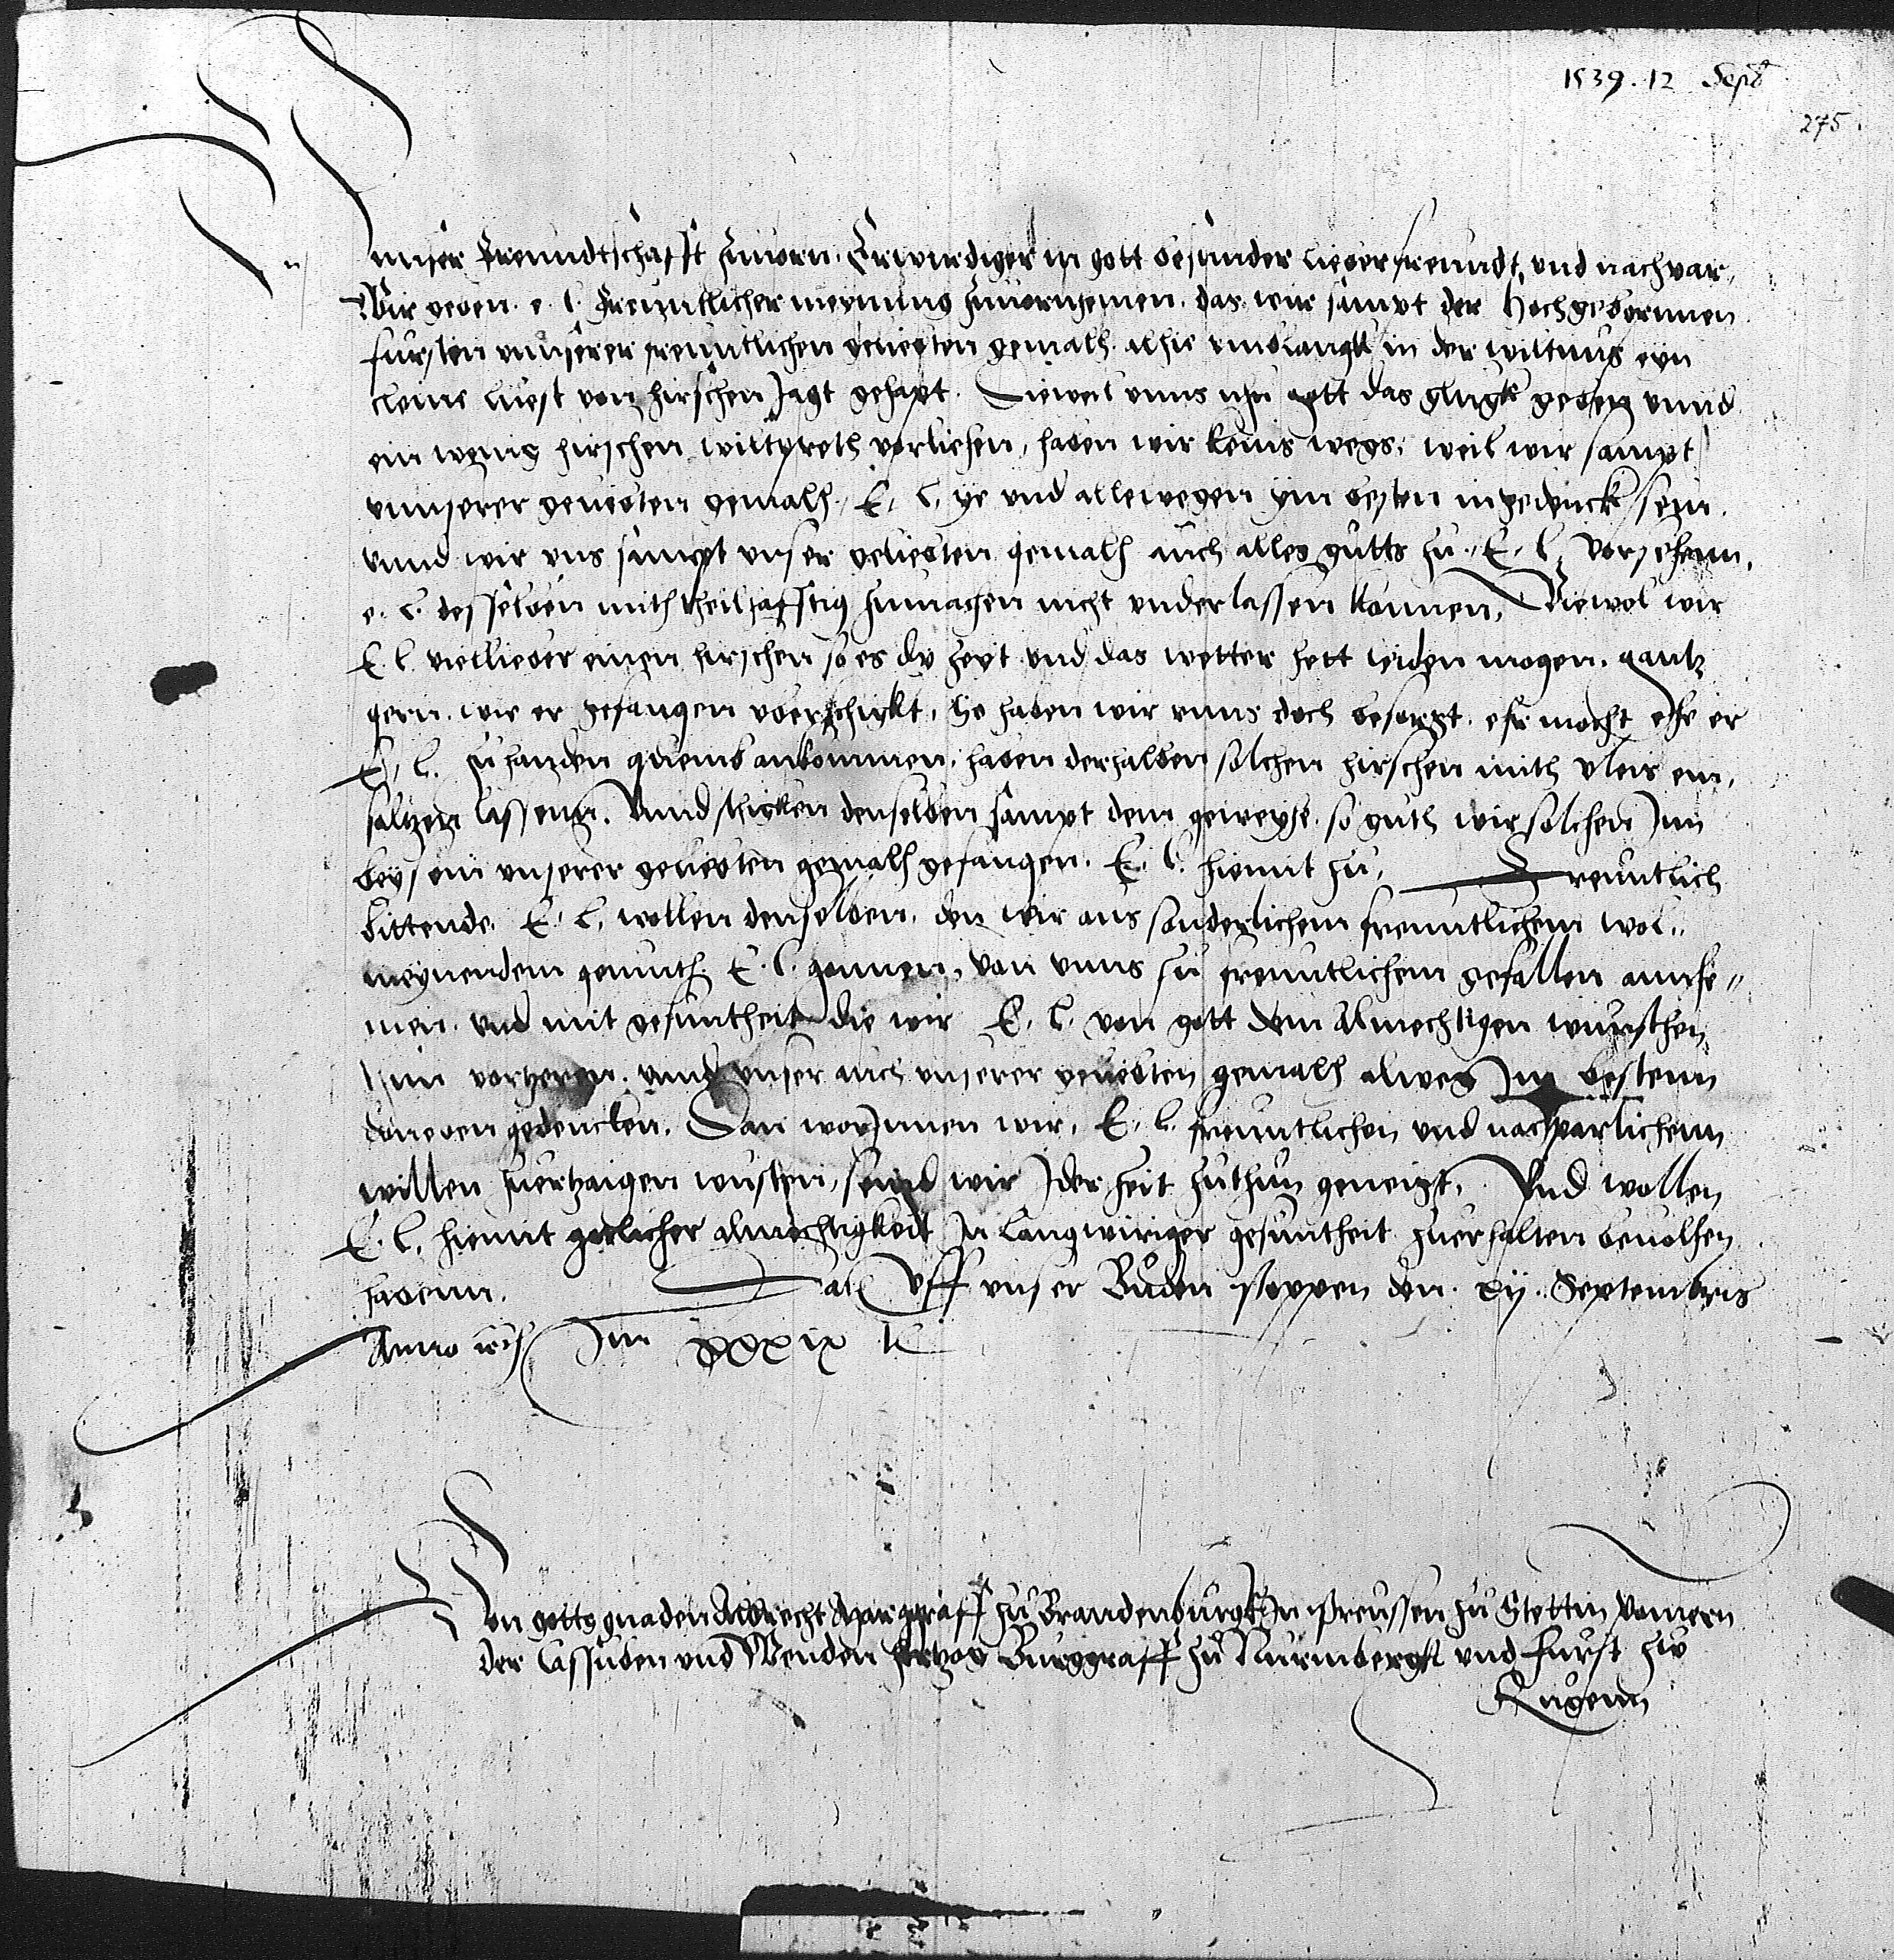 1539. 12 Sept
275.
Unnser freundtschafft zuvorn. Erwirdiger in gott besunder lieber freundt, und nachpar,
Wir geben. e. l. freuntlicher meynung zuvornhemen. das wir sampt der Hochgebornnen
fursten unnserer freuntlichen geliebten gemalh. alhie umblangst in der wiltnus eyn
cleine liest von hirschen Jagt gehapt. Dieweil unns nhu gott das glugk geben unnd
ein wenig hirschen wiltpreth vorliehen, haben wir keins wegs, weil wir sampt
unnserer geliebten gemalh, E. l. ye und allewegen ym besten ingedenck sein.
unnd wir uns sampt unser geliebten gemalh auch alles gutts zu, E. l. vorsehenn,
e. l. desselben mith theilhafftig zumachen nicht underlassen konnen, Wiewol wir
E. l. viellieber einen hirschen so es dy zeyt und das wetter hett leiden mogen. gantz
gern. wie er gefangen uberschickt, So haben wir unns doch besorgt. ehr mocht ehe er
E. l. zu handen quemb ankommen, haben derhalben solchen hirschen mith vleis ein,
saltzen lassenn. Unnd schicken denselben sampt dem geweyhe. so guth wir solchen Jnn
beysein unserer geliebten gemalh gefangen. E. l. hiemit zu, Freuntlich
bittende, E. l. wollen denselben, den wir aus sonderlichem freuntlichem wol,,
meynendem gemuth E. l. gonnen, von unns zu freuntlichem gefallen annehe,,
men. und mit gesuntheit die wir E. l. von gott dem Almechtigen wunschen,
Jnn vorzeren. unnd unser auch unserer geliebten gemalh alweg Jm bestenn
doneben gedencken. Dan worJnnen wir, E. l. freuntlichen und nachparlichenn
willen zuertzaigen wusten, seind wir Jder zeit zuthun geneigt, Und wollen
E. l. hiemit gotlicher almechtigkeit Jn langwiriger gesuntheit zuerhalten bevolhen
habenn. Dat Uff unser Buden stoppen den. xij. Septembris
Anno rc Jm XXXIX t
Von gotts gnaden Albrecht Marggraff zu Brandenburgk Jn Preussen zu Stettin Pomern
der Cassuben und Wenden Hertzog Burggraff zu Nurmbergk und Furst zw
Rugenn